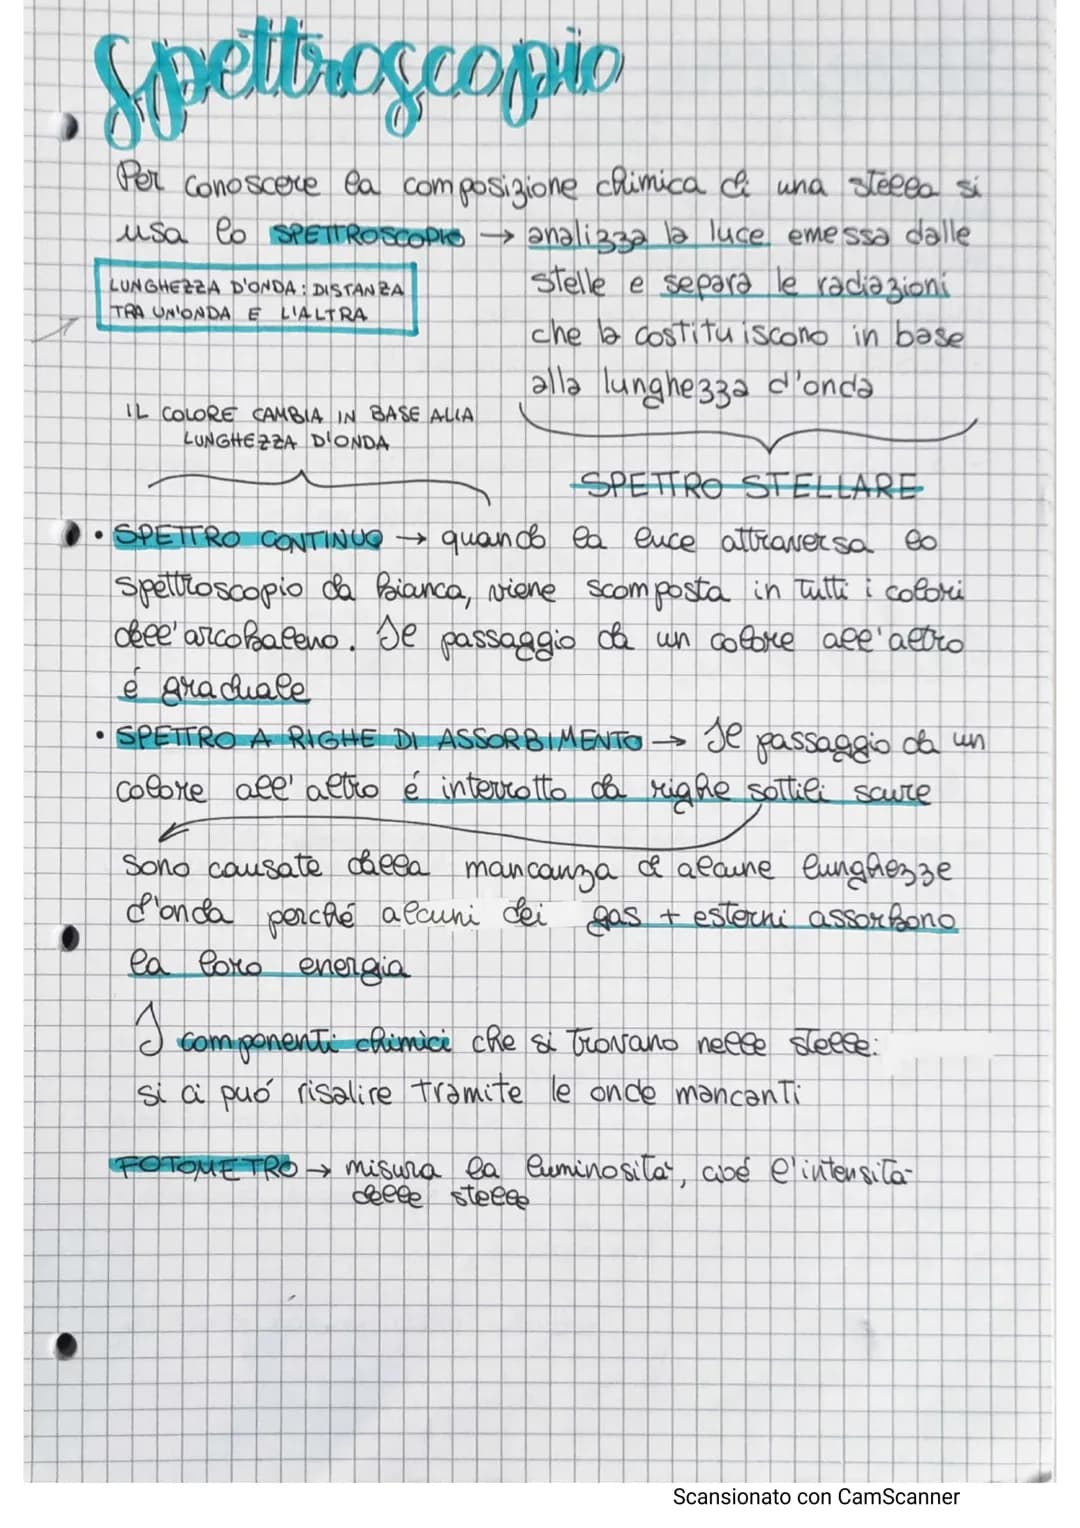 Spettroscopio
Per conoscere la composizione chimica di una stella si
usa lo SPETTROSCOPIO → analizza la luce emessa dalle
stelle e separa le radiazioni
che la costituiscono in base
alla lunghezza d'onda
LUNGHEZZA D'ONDA: DISTANZA
TRA UN'ONDA E L'ALTRA
IL COLORE CAMBIA IN BASE ALLA
LUNGHEZZA D'ONDA
SPETTRO STELLARE
• SPETTRO CONTINUO → quando la luce attraversa lo
spettroscopio da bianca, viene scomposta in tutti i colori
dell'arcobaleno. Il passaggio da un colore all'altro
é graduale
• SPETTRO A RIGHE DI ASSORBIMENTO → Il passaggio da un
colore all'altro é interrotto da righe sottili scure
Sono causate dalla mancanza di alcune lunghezze
d'onda perché alcuni dei gas + esterni assorbono
la loro energia
I componenti chimici che si trovano nelle stelle:
si ci puó risalire tramite le onde mancanti
FOTOMETRO → misura la luminositá, cioé l'intensitá
delle stelle
Scansionato con CamScanner